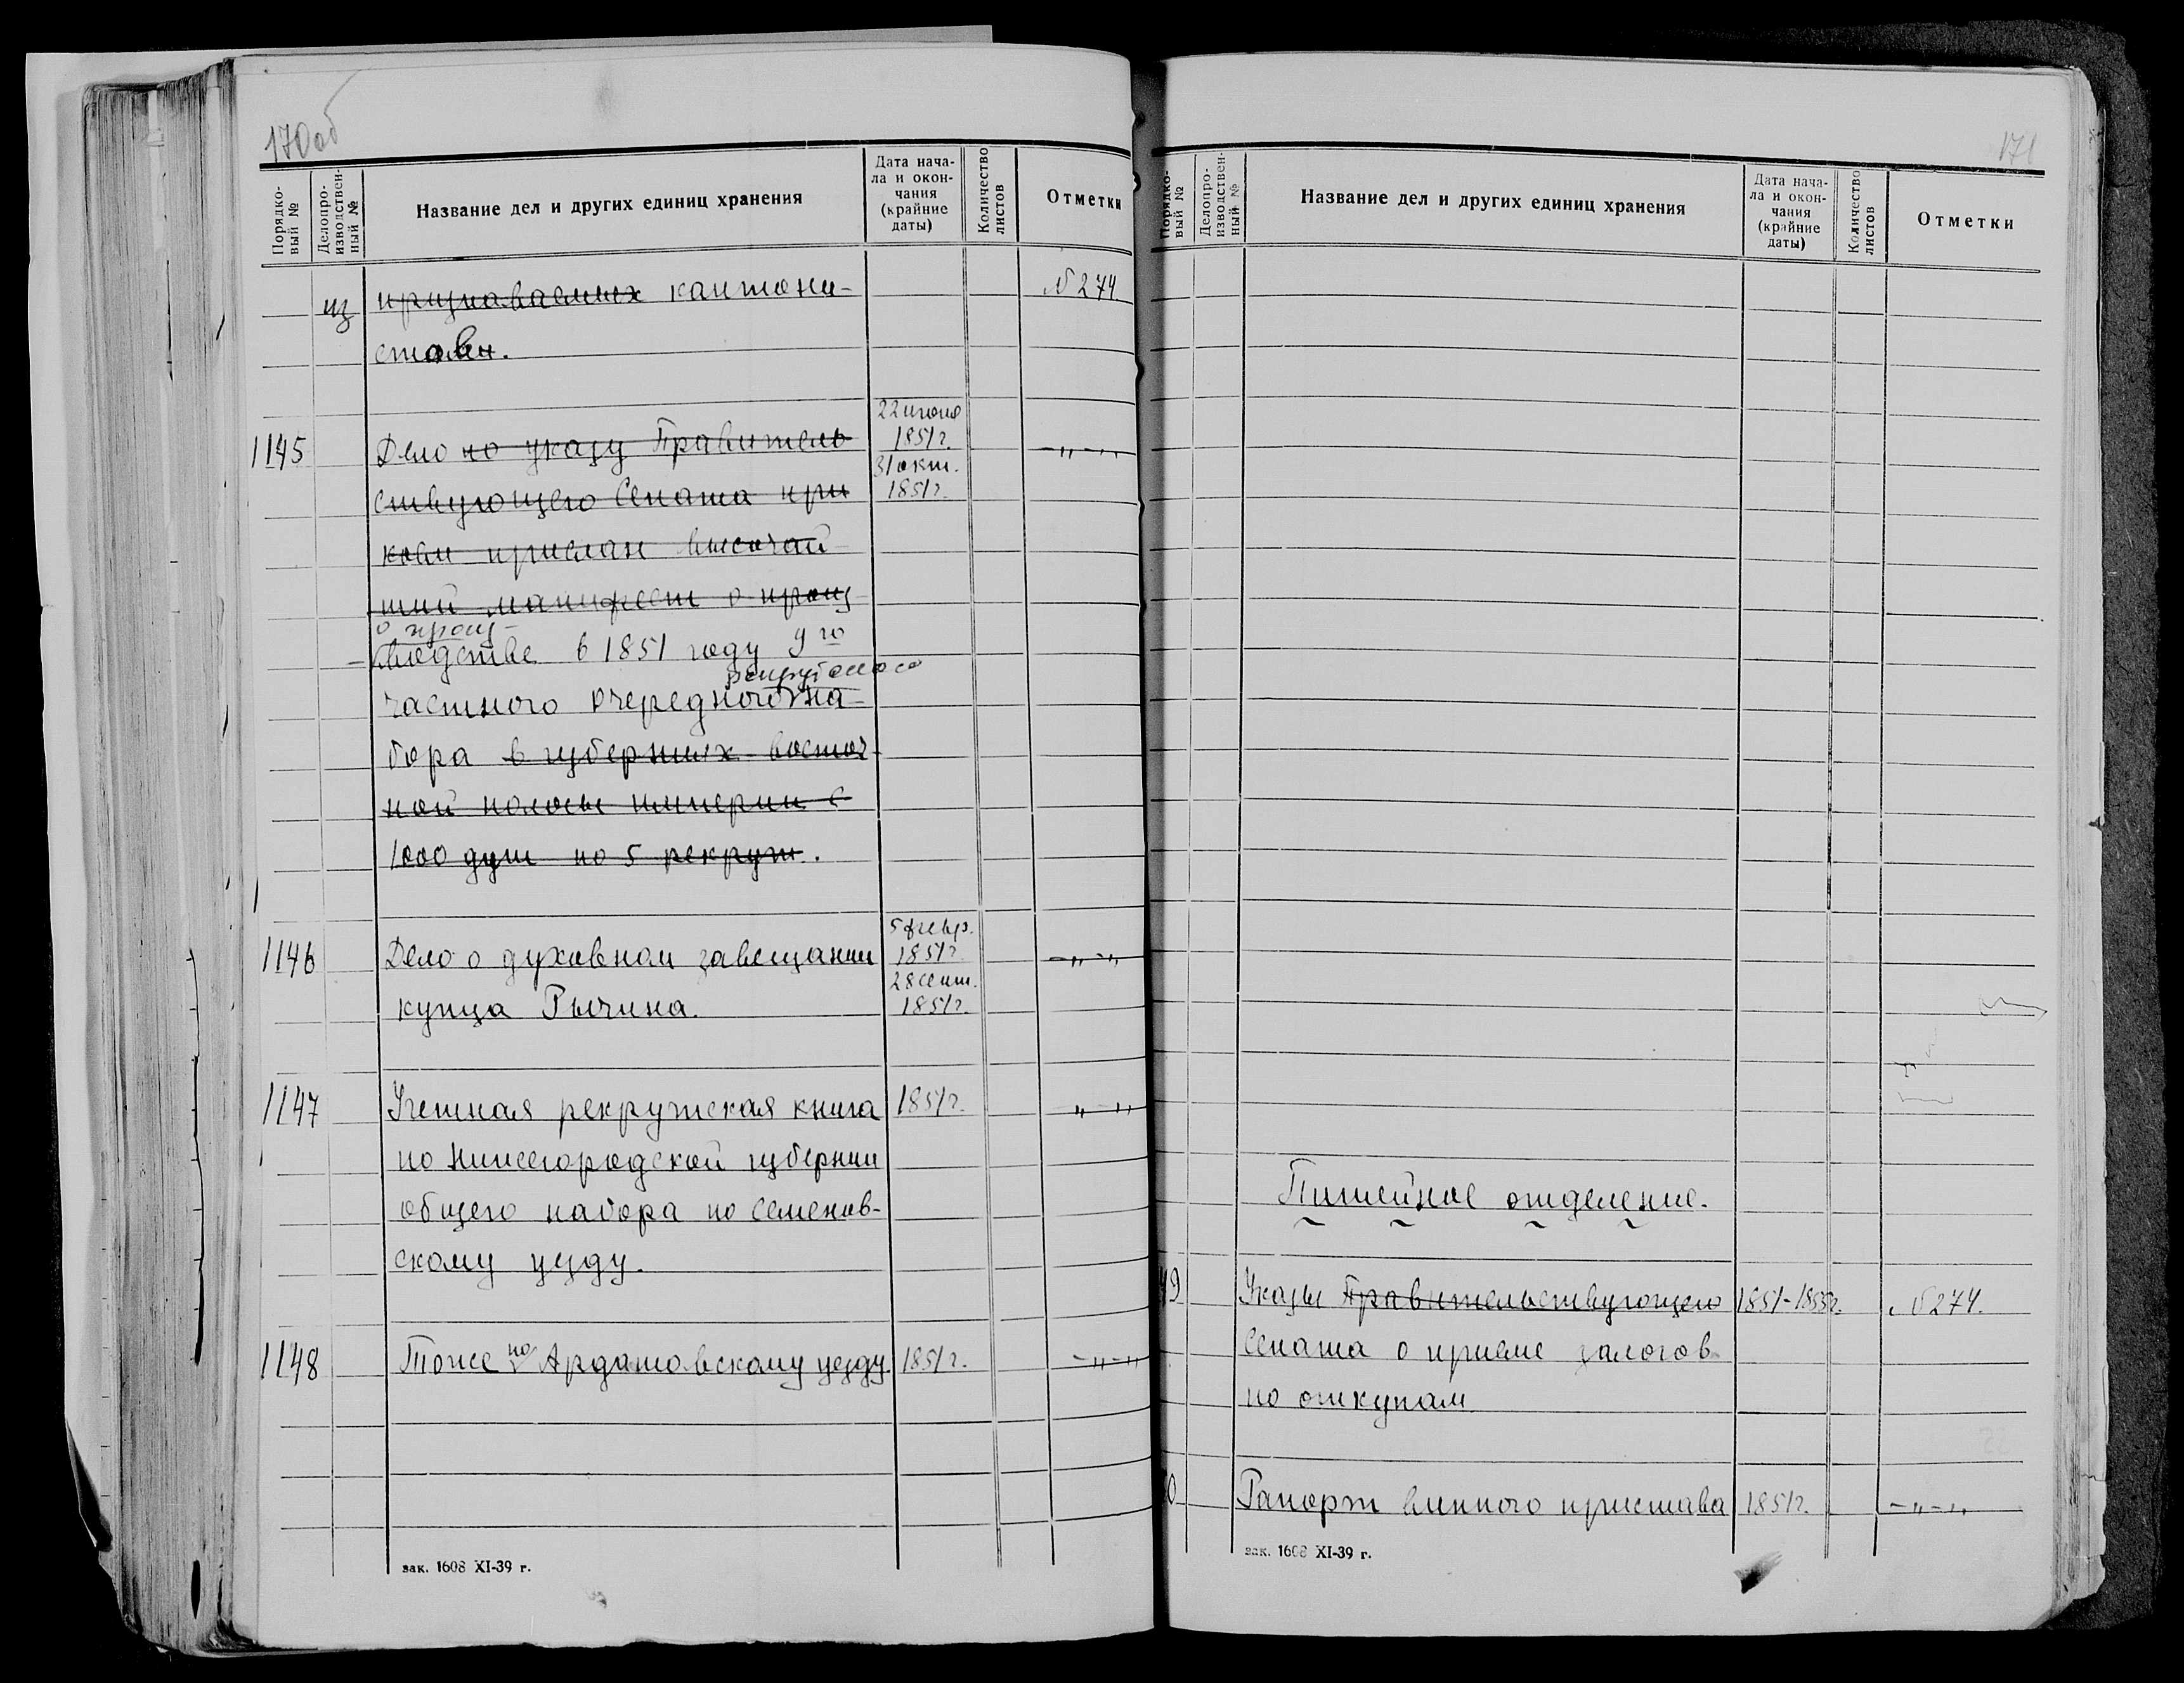 170об
Порядко-
вый №
Делопро-
изводствен-
ный №
Название дел и других единиц хранения
Дата нача-
ла и окон-
чания
(крайние
даты)
Количество
листов
Отметки
из признаваемых кантони- №274
стов.
22 июня
1145 Дело по указу Правитель 1851г. -„-„
31 окт.
ствующего Сената при 1851г.
коем прислан высочай
ший манифест о произ
о произ-
водстве в 1851 году 9го
рекрутского
частного очередного на-
бора в губерниях восточ-
ной полосы империи с
1000 душ по 5 рекрут.
5 февр.
1146 Дело о духовном завещании 1851г. -„-„
28 сент.
купца Рычина. 1851г.
1147 Учетная рекрутская книга 1851г. -„-„
по Нижегородской губернии
общего набора по Семенов-
скому уезду.
1148 Тоже по Ардатовскому уезду 1851г. -„-„
зак. 1608 XI-39 г.
171
Порядко-
вый №
Делопро-
изводствен-
ный №
Название дел и других единиц хранения
Дата нача-
ла и окон-
чания
(крайние
даты)
Количество
листов
Отметки
Питейное отделение.
49 Указы Правительствующего 1851-1855г. №274.
Сената о приеме залогов
по откупам
0 Рапорт винного пристава 1851г. -„-„
зак. 1608 XI-39 г.